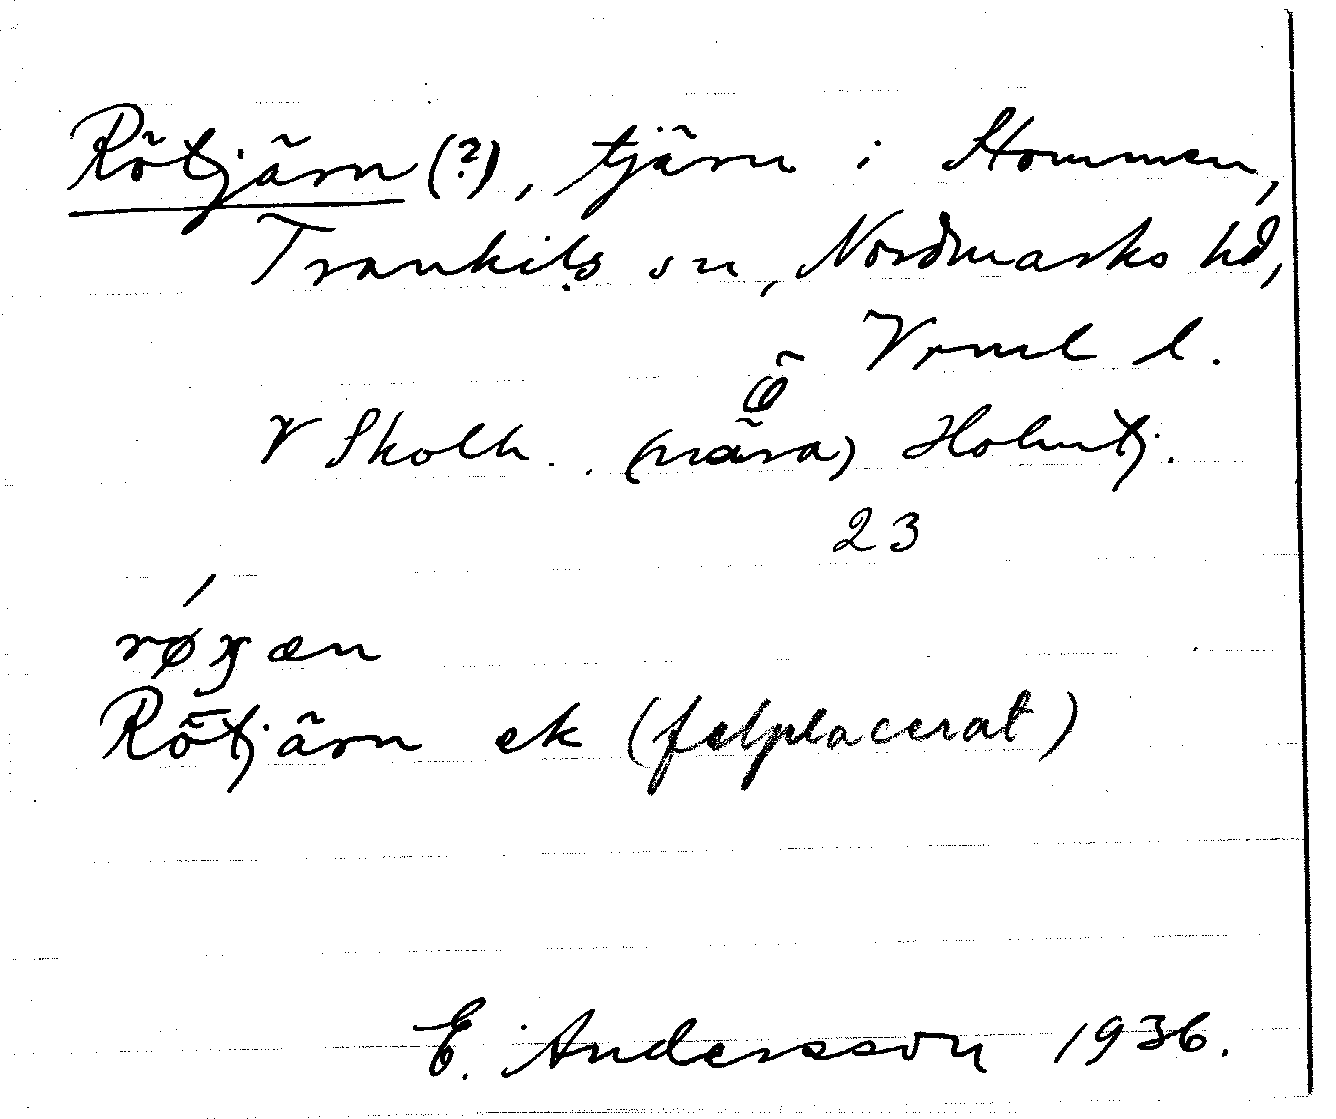 Rötjärn (?), tjärn i Hommen,
Trankils sn, Nordmarks hd,
Vrml l.
V Skolh. . (nära) Holmtj.
23
Rötjärn ek (felplacerat)
E. Andersson 1936.